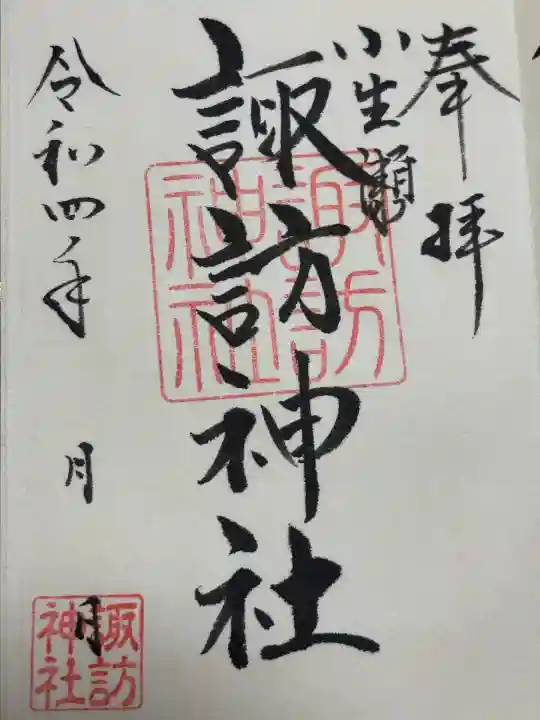 奉拝
小生瀬
諏訪神社
諏訪
神社
令和四年 月 月
諏訪
神社